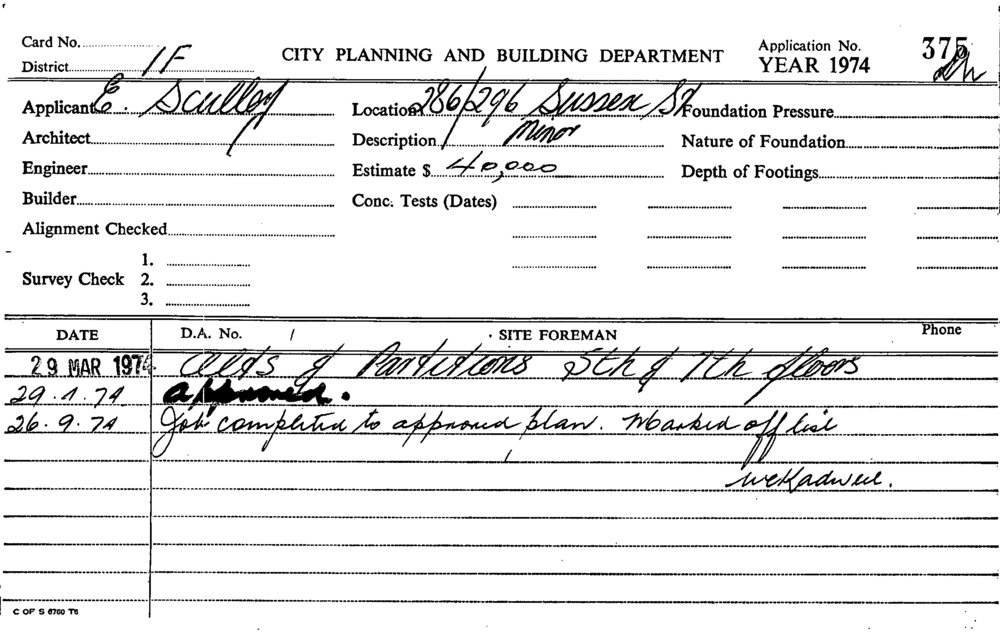 Card No.
District 1F
CITY PLANNING AND BUILDING DEPARTMENT
Application No. 375
YEAR 1974
Applicant E. Sculley
Location 286/296 Sussex St
Foundation Pressure
Architect
Description Minor
Nature of Foundation
Engineer
Estimate $ 40,000
Depth of Footings
Builder
Conc. Tests (Dates)
Alignment Checked
Survey Check
1.
2.
3.
DATE
D.A. No. /
SITE FOREMAN
Phone
29 MAR 1974 Alts & Partitions 5th & 7th floors
29.1.74 approved.
26.9.74 Job completed to approved plan. Marked off list
C OF S 6760 T6